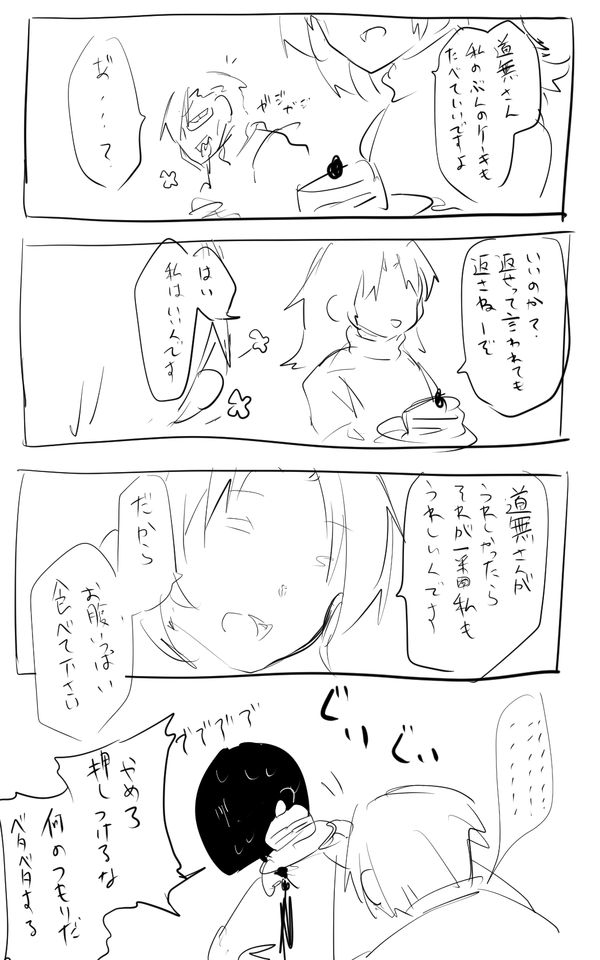 道無さん
私のぶんのケーキも
たべていいですよ
ガジガジ
お・・・？
いいのか？
返せって言われても
返さねーぞ
はい
私はいいんです
道無さんが
うれしかったら
それが一番私も
うれしいんです
だから
お腹いっぱい
食べて下さい
ぐいぐい
ブブブブ
やめろ
押しつけるな
何のつもりだ
ベタベタする